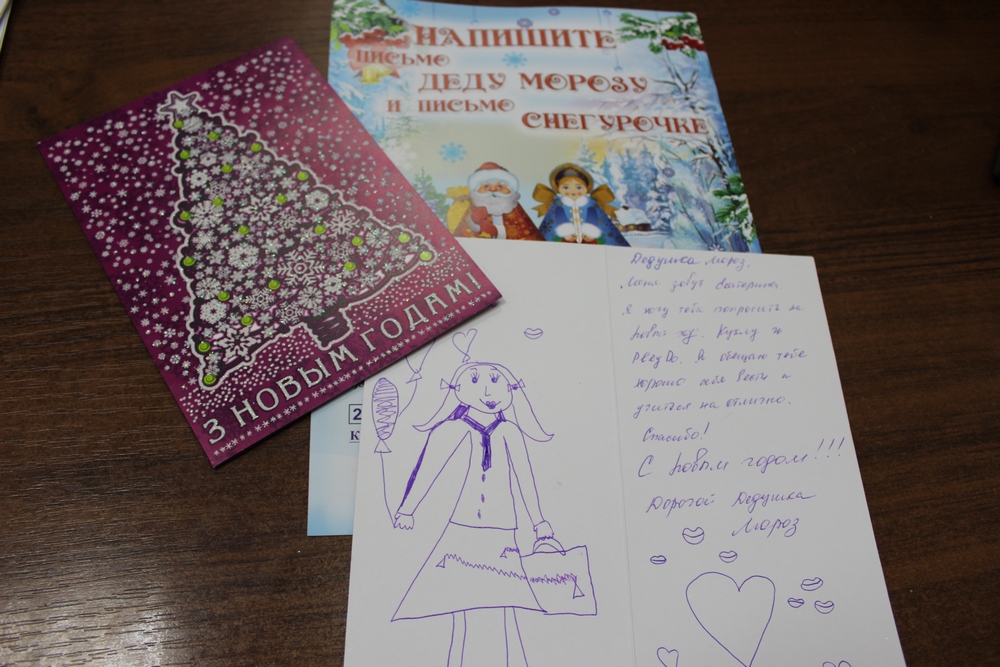 НАПИШИТЕ
ПИСЬМО
ДЕДУ МОРОЗУ
И ПИСЬМО
СНЕГУРОЧКЕ
З НОВЫМ ГОДАМ!
2
К
Дедушка Мороз.
Меня зовут Екатерина
Я хочу тебя попросить на
Новый год. Куклу и
PlayDo. Я обещаю тебе
хорошо себя вести и
учиться на отлично.
Спасибо!
С Новым годом!!!
Дорогой Дедушка
Мороз